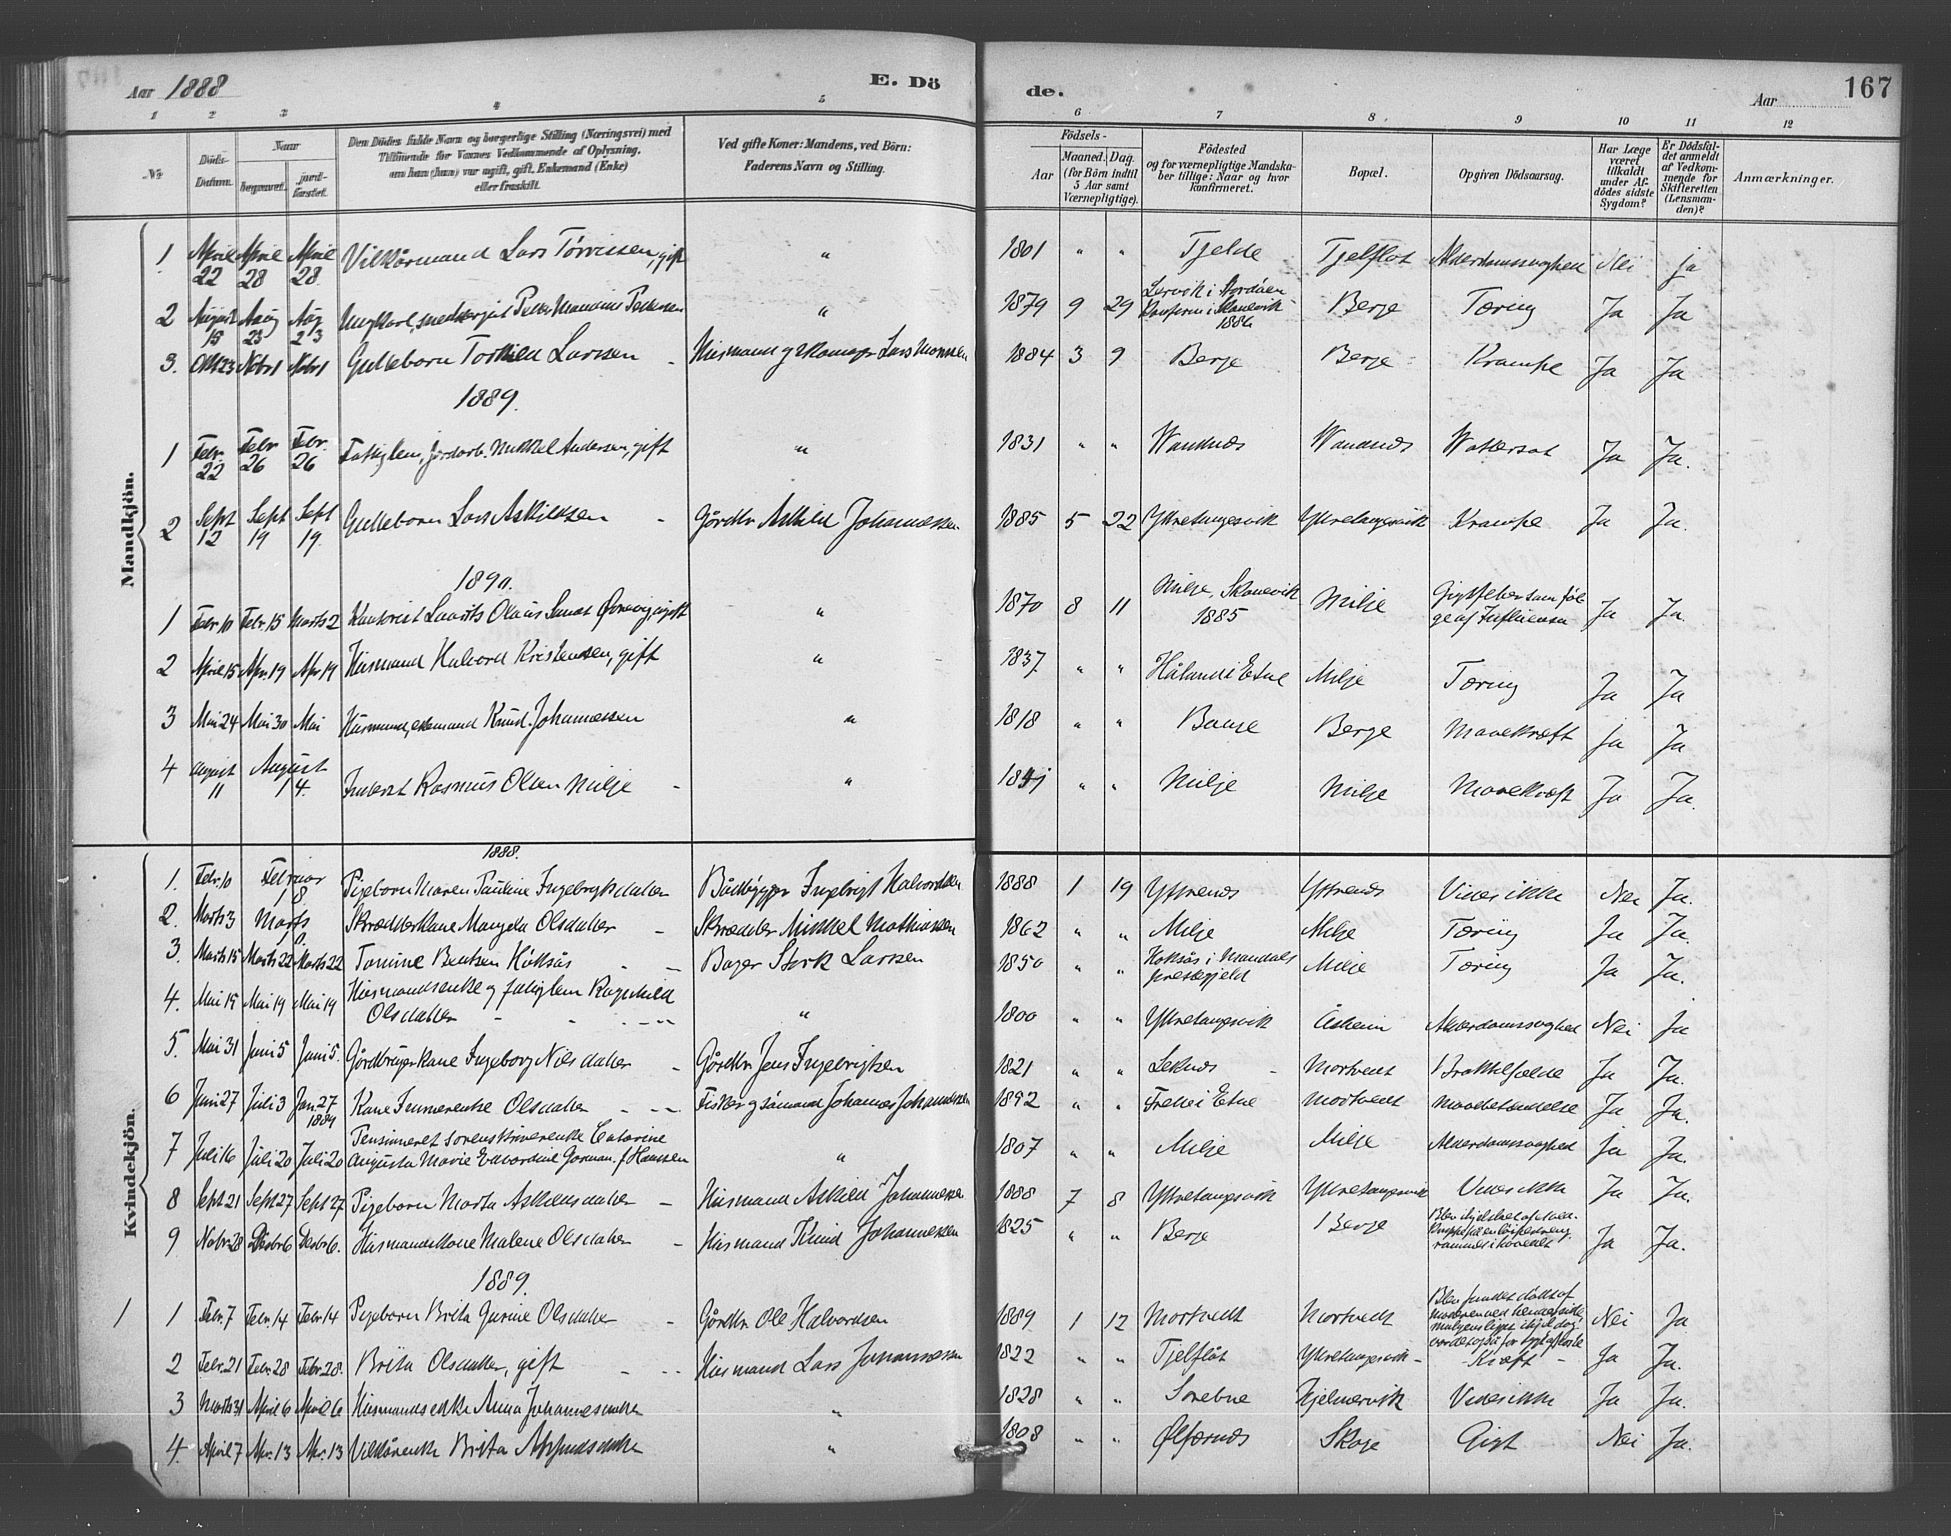 Aar 1888
E. Dö
de.
Aar
167
1 2 3 4 5 6 7 8 9 10 11 12
№
Döds-Datum.
Naar
begravet.
jord-fæstet.
Den Dödes fulde Navn og borgerlige Stilling (Næringsvei) med Tilföiende for Voxnes Vedkommende af Oplysning, om han (hun) var ugift, gift, Enkemand (Enke) eller fraskilt.
Ved gifte Koner: Mandens, ved Börn: Faderens Navn og Stilling.
Födsels-
Aar
Maaned.
Dag.
(for Börn indtil 5 Aar samt Værnepligtige).
Födested og for værnepligtige Mandska-ber tillige: Naar og hvor konfirmeret.
Bopæl.
Opgiven Dödsaarsag.
Har Læge været tilkaldt under Af-dödes sidste Sygdom?
Er Dödsfal-det anmeldt af Vedkom-mende for Skifteretten (Lensman-den)?
Anmærkninger.
Mandkjön.
1. April 22 April 28 April 28 Vilkårmand Lars Tørrissen, gift " 1801 " " Tjelde Tjelflot Alderdomssvaghed Nei ja
2 August 18 Aug 23 Aug 23 Ungkarl, Peder Pedersen " 1879 9 29 Lervik i Stordøen Konfirm i Skånevik 1886 Berge Tæring Ja Ja
3. Okt 23 Nobr 1 Nobr 1 Gutteborn Torkild Larssen - Husmand og Skomager Lars Monssen 1884 3 9 Berge Berge Krampe Ja Ja
1889.
1 Febr. 22 Febr 26 Febr. 26 Fattiglem, jordarb. Mikkel Andersen, gift " 1831 " " Wandnæs Wandnæs Wattersot Ja Ja.
2 Sept 12 Sept 19 Sept 19. Gutteborn Lars Askildsen - Gårdbr Askild Johannessen 1885 5 22 Ytretungesvik Ytretungesvik Krampe Ja Ja.
1890.
1 Febr. 10 Febr. 15 Marts 2 Laurits Olaus ugift " 1870 8 11 Milje, Skånevik 1885 Milje Gigtfeber som føl ge af Influensa Ja Ja.
2 April 15 Apr. 19 Apr 19 Husmand Halvord Kristensen, gift " 1837 " " Håland i Etne Milje Tæring Ja Ja
3 Mai 24 Mai 30 Mai Husmand, enkemand Knud Johannessen " 1818 " " Berge Mavekræft ja Ja
4 August 11 August 14. Rasmus Olsen Milje - " " " Milje Milje Mavekræft Ja Ja.
Kvindekjön.
1888.
1. Febr. 10 Februar Pigeborn Maren Pauline Ingebrigtsdatter Bådbygger Ingebrigt Halvordsen 1888 1 19 Ytrenæs Ytrenæs Vides ikke Nei Ja.
2. Marts 3 Marts Skrædderkone Olsdatter - Skrædder Mikkel Mathiassen 1862 " " Milje Milje Tæring Ja Ja.
3. Marts 15 Marts 22 Marts 22 Tomine Bentsen Høksås - Bager Sterk Larssen 1850 " " Høksås i Mandals prestegjeld Milje Tæring Ja Ja.
4. Mai 15 Mai 19 Mai 19 Husmandsenke og fattiglem Ragnhild Olsdatter " 1800 " " Ytretungesvik Åsheim Alderdomssvaghed Nei Ja
5. Mai 31 Juni 5 Juni 5. Gårdbrugerkone Ingeborg Nilsdatter - Gårdbr Jens Ingebrigtsen 1821 " " Leknæs - Mortvedt Ja Ja.
6 Juni 27 Juli 3 Jan. 27 1889 Kone Olsdatter - Fisker og sømand Johannes Johannessen " " Frette i Etne Mortvedt Ja Ja.
7 Juli 16 Juli 20 Juli 20 Pensioneret Sorenskriverenke Catarine Augusta Marie f. Hanssen " 1807 " " Milje Milje Alderdomssvaghed ja Ja.
8 Sept. 21 Sept. 27 Sept 27 Pigeborn Marta Askildsdatter - Husmand Askild Johannessen 1888 7 8 Ytretungesvik Ytretungesvik Vides ikke Ja Ja.
9 Nobr. 28 Desbr 6 Desbr 6. Husmandskone Malene Olsdatter - Husmand Knud Johannessen 1825 " " Berge Berge Ja Ja.
1889.
1 1 Febr. 7 Febr. 14 Febr 14 Pigeborn Brita Gurine Olsdatter - Gårdbr. Ole Halvordsen 1889 1 12 Mortvedt Mortvedt Blev fundet dødt af moderen ved hendes side Nei Ja
2 Febr. 21 Febr. 28 Febr. 28. Brita Olsdatter, gift - Husmand Lars Johannessen 1822 " " Tjelflot Ytretungesvik - Kræft - Ja Ja.
3 Marts 31 April 6 April 6 Husmandsenke Anna Johannesdatter " 1828 " " Hjelmervik Vides ikke Ja Ja
4. April 7 Apr. 13 Apr. 13 Vilkårenke Brita " 1808 " " Ølfærnæs Skoge Gigt Nei Ja.